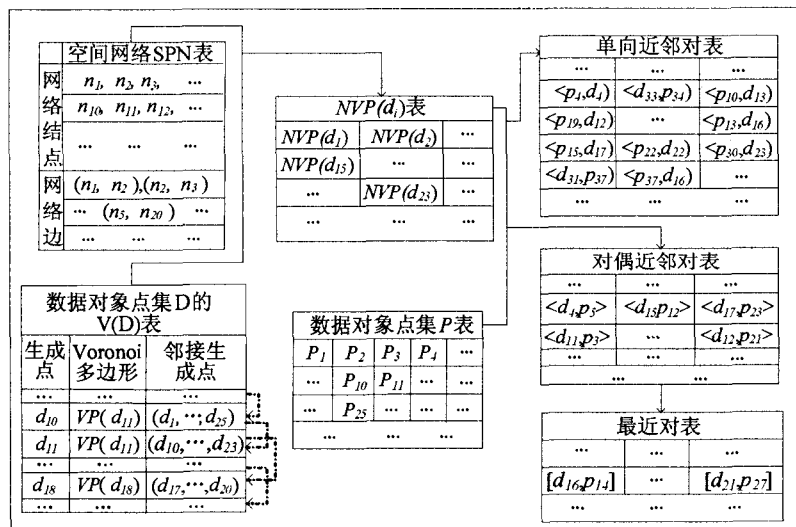 空间网络SPN表
网络结点
n1, n2, n3, ...
n10, n11, n12, ...
... ... ...
网络边
(n1, n2),(n2, n3)
... (n5, n20) ...
... ... ...
数据对象点集D的
V(D)表
生成点 Voronoi多边形 邻接生成点
... ... ...
d10 VP(d11) (d1,...,d25)
d11 VP(d11) (d10,...,d23)
... ... ...
d18 VP(d18) (d17,...,d20)
... ... ...
NVP(di)表
NVP(d1) NVP(d2) ...
NVP(d15) ... ...
... NVP(d23) ...
... ... ...
数据对象点集P表
P1 P2 P3 P4 ...
... P10 P11 ... ...
... P25 ... ... ...
... ... ...
单向近邻对表
... ... ...
<p4,d4) <d33,p34) <p10,d13)
<p19,d12) ... <p13,d16)
<p15,d17) <p22,d22) <p30,d23)
<d31,p37) <p37,d16) ...
... ... ...
对偶近邻对表
... ... ...
<d4,p5> <d15p12> <d17,p23>
<d11,p3> ... <d12,p21>
... ... ...
... ...
最近对表
... ... ...
[d16,p14] ... [d21,p27]
... ... ...